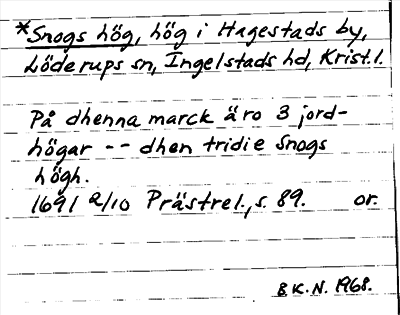 *Snogs hög, hög i Hagestads by,
Löderups sn, Ingelstads hd, Krist. l.
På dhenna marck äro 3 jord-
högar -- dhen tridie Snogs
högh.
1691 2/10 Prästrel., s. 89. or.
B K. N. 1968.